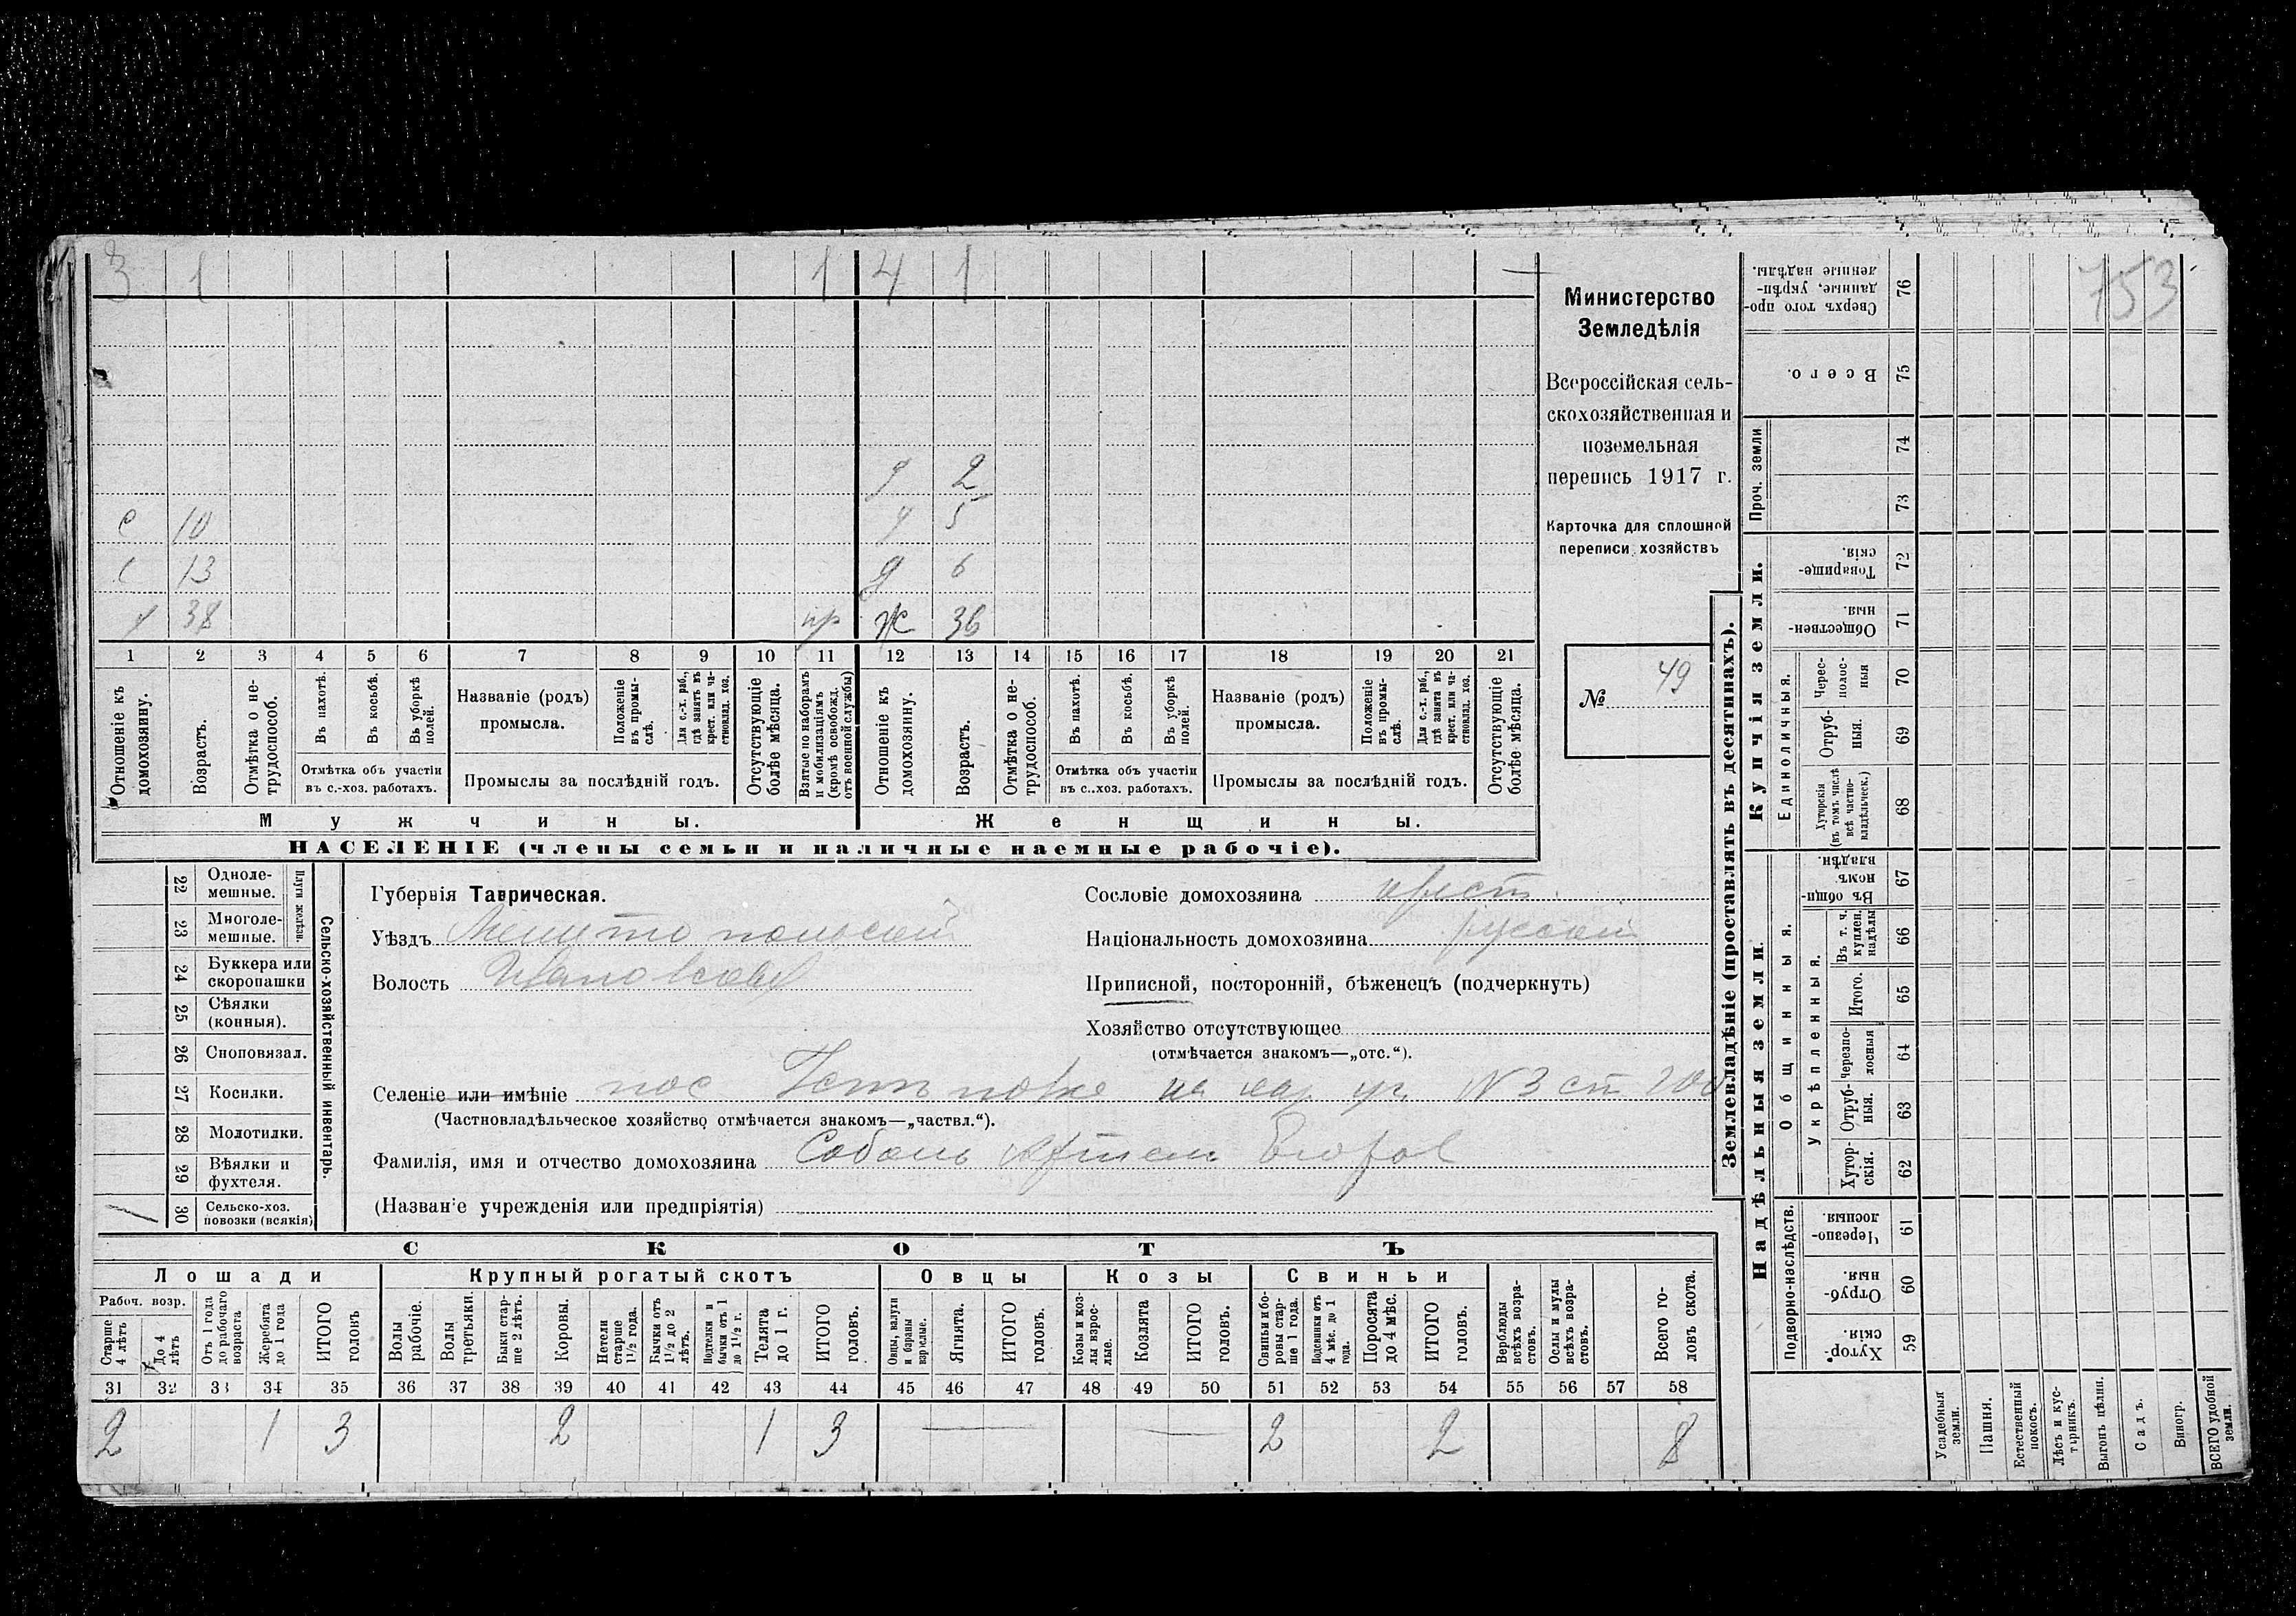 3 1 1 4 1
753
Министерство
Земледѣлія
Всероссійская сель-
скохозяйственная и
поземельная
перепись 1917 г.
Карточка для сплошной
переписи хозяйствъ
№ 49
2
с 10 5
с 13 д 6
38 пр ж 36
1 2 3 4 5 6 7 8 9 10 11 12 13 14 15 16 17 18 19 20 21
Отношеніе къ домохозяину.
Возрастъ.
Отмѣтка о не-трудоспособ.
Въ пахотѣ.
Въ косьбѣ.
Въ уборкѣ полей.
Отмѣтка объ участіи
въ с.-хоз. работахъ.
Названіе (родъ)
промысла.
Положеніе въ промы-слѣ.
Для с.-х. раб., гдѣ занятъ въ крест. или ча-стновлад. хоз.
Промыслы за послѣдній годъ.
Отсутствующіе болѣе мѣсяца.
Взятые по наборамъ и мобилизаціямъ (кромѣ освобожд. отъ военной службы)
Отношеніе къ домохозяину.
Возрастъ.
Отмѣтка о не-трудоспособ.
Въ пахотѣ.
Въ косьбѣ.
Въ уборкѣ полей.
Отмѣтка объ участіи
въ с..хоз. работахъ.
Названіе (родъ)
промысла.
Положеніе въ промы-слѣ.
Для с.-х. раб., гдѣ занята въ крест. или ча-стновлад. хоз.
Промыслы за послѣдній годъ.
Отсутствующіе болѣе мѣсяца.
Мужчины. Женщины.
НАСЕЛЕНІЕ (члены семьи и наличные наемные рабочіе).
Сельско-хозяйственный инвентарь.
Плуги желѣзн.
22 Однолемешные.
23 Многолемешные.
24 Буккера или скоропашки
25 Сѣялки (конныя).
26 Сноповязал.
27 Косилки.
28 Молотилки.
29 Вѣялки и фухтеля.
30 Сельско-хоз. повозки (всякія) 1
Губернія Таврическая.
Уѣздъ Мелитопольский
Волость Ивановская
Сословіе домохозяина крест.
Національность домохозяина русский
Приписной, посторонній, бѣженецъ (подчеркнуть)
Хозяйство отсутствующее
(отмѣчается знакомъ—„отс.“).
Селеніе или имѣніе пос на уч. N3 ст
(Частновладѣльческое хозяйство отмѣчается знакомъ—„частвл.“).
Фамилія, имя и отчество домохозяина Соболь Артем Егоров
(Названіе учрежденія или предпріятія)
СКОТЪ
Лошади Крупный рогатый скотъ Овцы Козы Свиньи
Рабоч. возр.
Старше 4 лѣтъ
До 4 лѣтъ
Отъ 1 года до рабочаго возраста
Жеребята до 1 года
ИТОГО головъ
Волы рабочіе.
Волы третьяки.
Быки стар-ше 2 лѣтъ.
Коровы.
Нетели старше 1½ года.
Бычки отъ 1½ до 2 лѣтъ.
Подтелки и бычки отъ 1 до 1½ г.
Телята до 1 г.
ИТОГО головъ.
Овцы, валухи и бараны взрослые.
Ягнята.
ИТОГО головъ.
Козы и коз-лы взрос-лые.
Козлята
ИТОГО головъ.
Свиньи и бо-ровы стар-ше 1 года.
Подсвинки отъ 4 мѣс. до 1 года.
Поросята до 4 мѣс.
ИТОГО головъ.
Верблюды всѣхъ возра-стовъ.
Ослы и мулы всѣхъ возра-стовъ.
Всего го-ловъ скота.
31 32 33 34 35 36 37 38 39 40 41 42 43 44 45 46 47 48 49 50 51 52 53 54 55 56 57 58
2 1 3 2 1 3 — — 2 2 8
Землевладѣніе (проставлять въ десятинахъ).
Купчія земли.
Надѣльныя земли.
Сверхъ того про-данные, укрѣп-ленные надѣлы. 76
Всего. 75
Проч. земли 74 73
Товарище-скія. 72
Обществен-ныя 71
Единоличныя.
Черес-полос-ныя 70
Отруб-ныя. 69
Хуторскія (въ томъ числѣ всѣ частно-владѣльческ.) 68
Общинныя.
Въ общи-номъ владѣн. 67
Укрѣпленныя.
Въ т. ч. куплен. надѣлы 66
Итого. 65
Черезпо-лосныя 64
Отруб-ныя. 63
Хутор-скія. 62
Подворно-наслѣдств.
Черезпо-лосныя. 61
Отруб-ныя. 60
Хутор-скія. 59
Усадебныя земли.
Пашня.
Естественный покосъ.
Лѣсъ и кус-тарникъ.
Выгонъ цѣлин.
Садъ.
Виногр.
ВСЕГО удобной земли.